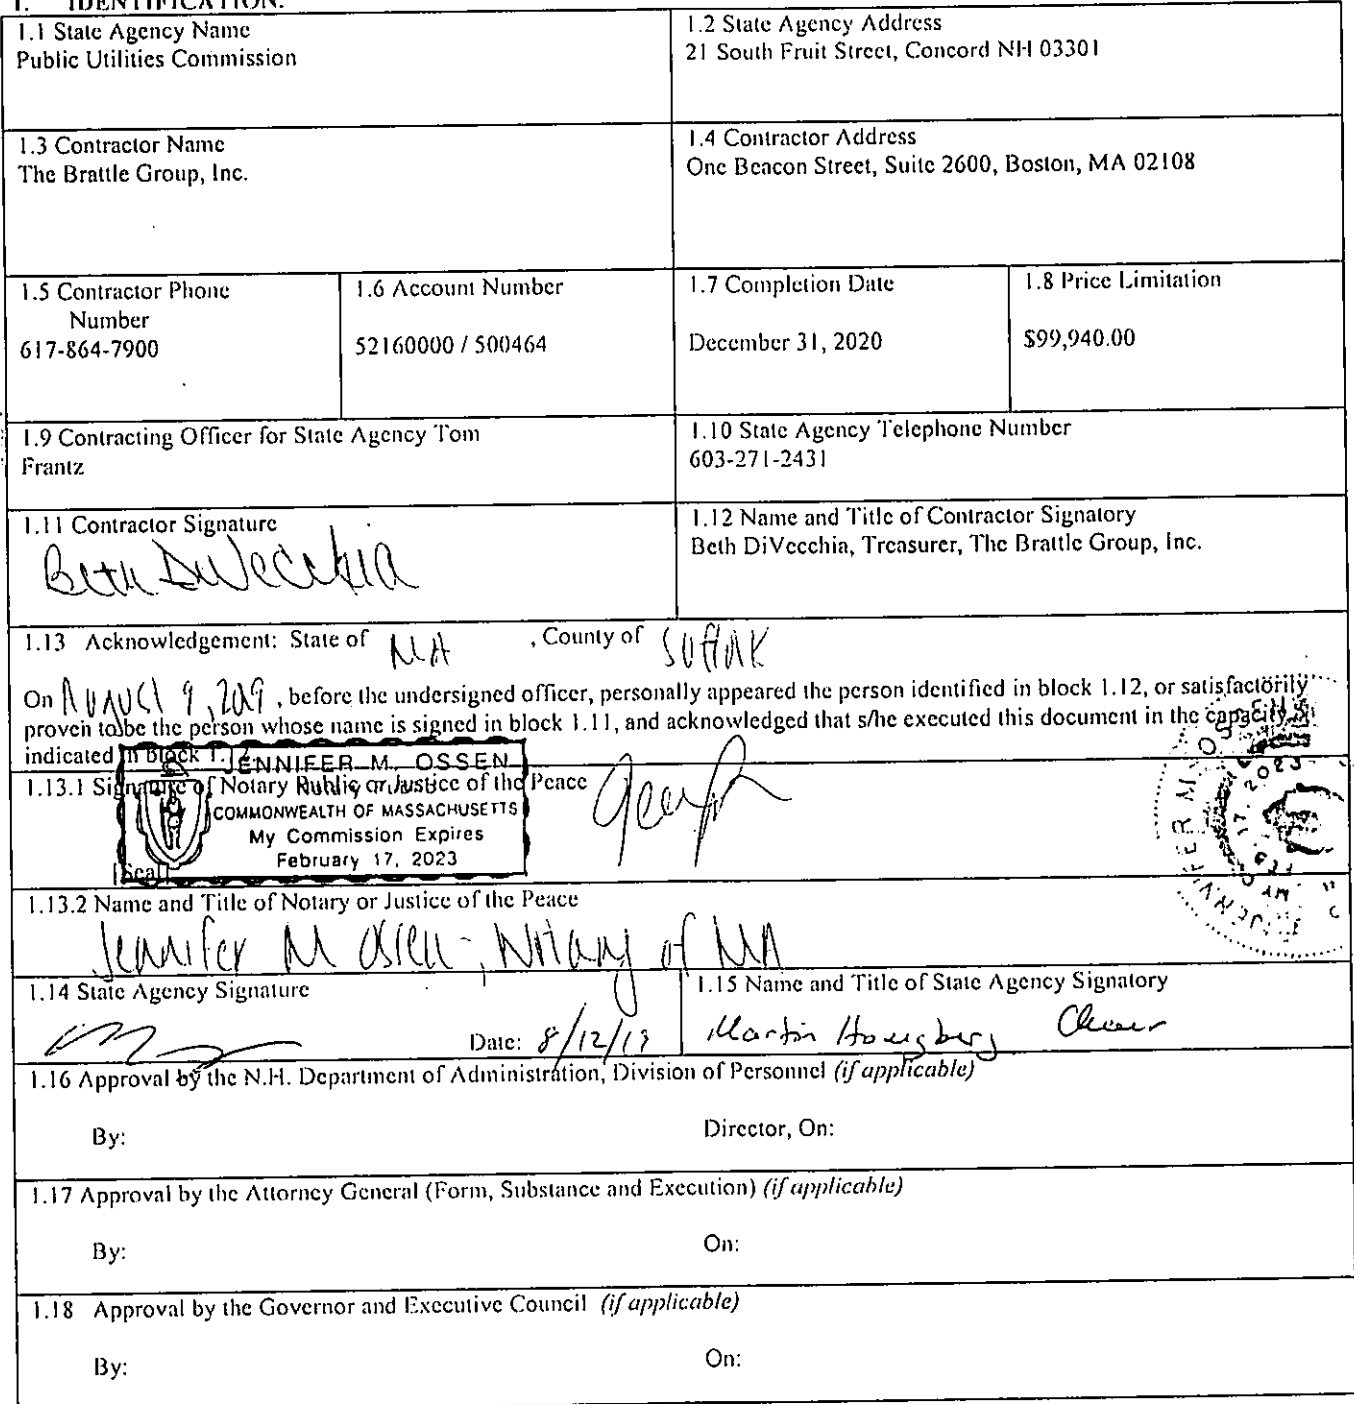 1. IDENTIFICATION.
1.1 State Agency Name
Public Utilities Commission
1.2 State Agency Address
21 South Fruit Street, Concord NH 03301
1.3 Contractor Name
The Brattle Group, Inc.
1.4 Contractor Address
One Beacon Street, Suite 2600, Boston, MA 02108
1.5 Contractor Phone
Number
617-864-7900
1.6 Account Number
52160000 / 500464
1.7 Completion Date
December 31, 2020
1.8 Price Limitation
$99,940.00
1.9 Contracting Officer for State Agency Tom
Frantz
1.10 State Agency Telephone Number
603-271-2431
1.11 Contractor Signature
Beth DiVecchia
1.12 Name and Title of Contractor Signatory
Beth DiVecchia, Treasurer, The Brattle Group, Inc.
1.13 Acknowledgement: State of MA , County of Suffolk
On August 9, 2019 , before the undersigned officer, personally appeared the person identified in block 1.12, or satisfactorily
proven to be the person whose name is signed in block 1.11, and acknowledged that s/he executed this document in the capacity
indicated in block 1.12
JENNIFER M. OSSEN
1.13.1 Signature of Notary Public or Justice of the Peace
Notary Public
COMMONWEALTH OF MASSACHUSETTS
My Commission Expires
February 17, 2023
[Seal]
1.13.2 Name and Title of Notary or Justice of the Peace
Jennifer M Ossen - Notary of MA
1.14 State Agency Signature
Date: 8/12/19
1.15 Name and Title of State Agency Signatory
Martin Honigberg Chair
1.16 Approval by the N.H. Department of Administration, Division of Personnel (if applicable)
By:
Director, On:
1.17 Approval by the Attorney General (Form, Substance and Execution) (if applicable)
By:
On:
1.18 Approval by the Governor and Executive Council (if applicable)
By:
On: